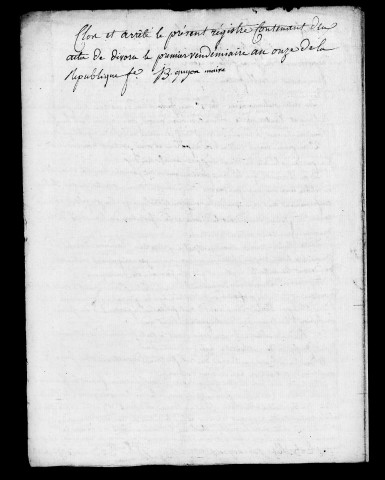 Clos et arrêté le présent régistre Contenant deux
actes de divorce le premier vendemiaire an onze de la
Republique fe B. guyon maire